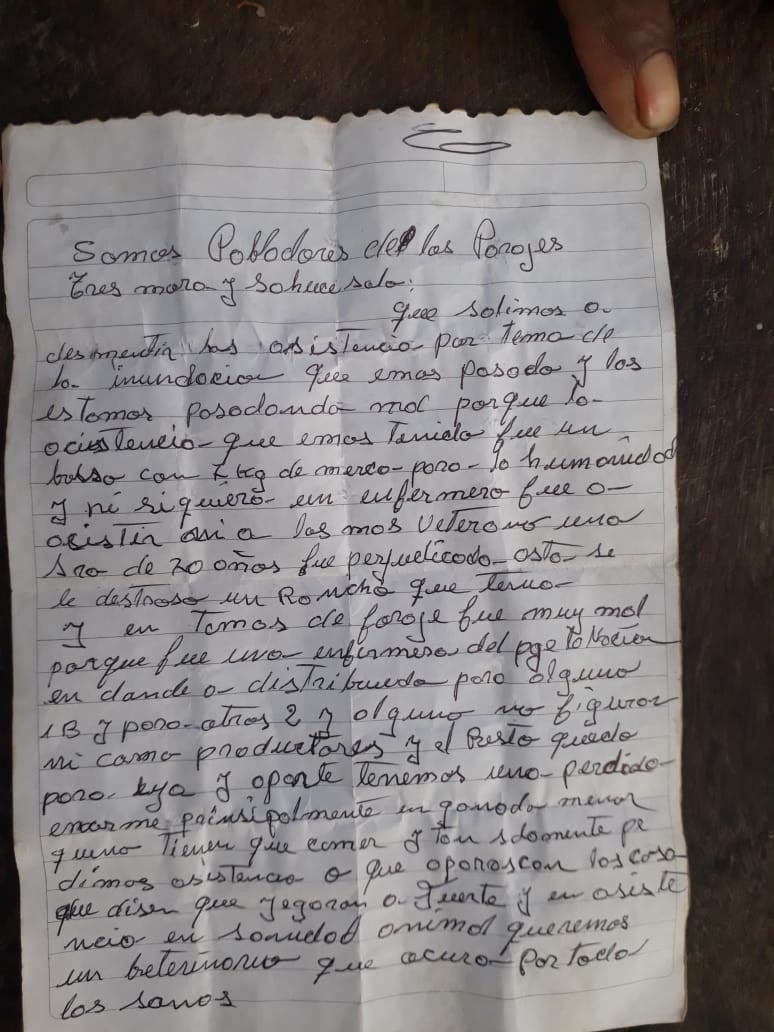 Somos Pobladores de los Parajes
tres mora y Sohuce solo:
que salimos a
desmentir las asistencia por tema de
la inundacion que emos pasado y los
estamos pasadando mal porque la
acistencia que emos Tenido fue un
bolso con 7 kg de merca para la humanidad
y ni siquiera un enfermero fue a
asistir asi a las mas veterano una
Sra de 70 años fue perjudicado asta se
le destroso un Roncho que tenia
y en Tomas de foraje fue muy mal
porque fue una enfirmera del pge
en donde a distribuedo para alguno
1B y para otros 2 y alguno no figuran
ni como productores y el Resto quedo
para eya y aparte tenemos una perdida
enorme prinsipalmente en ganado menor
que no tienen que comer y tan solomente pe
dimos asistencia o que aparoscan las cosa
que disen que yegaron a fuerte y en asiste
ncia en sanidad animal queremos
un beterinario que acura por todo
los sanos